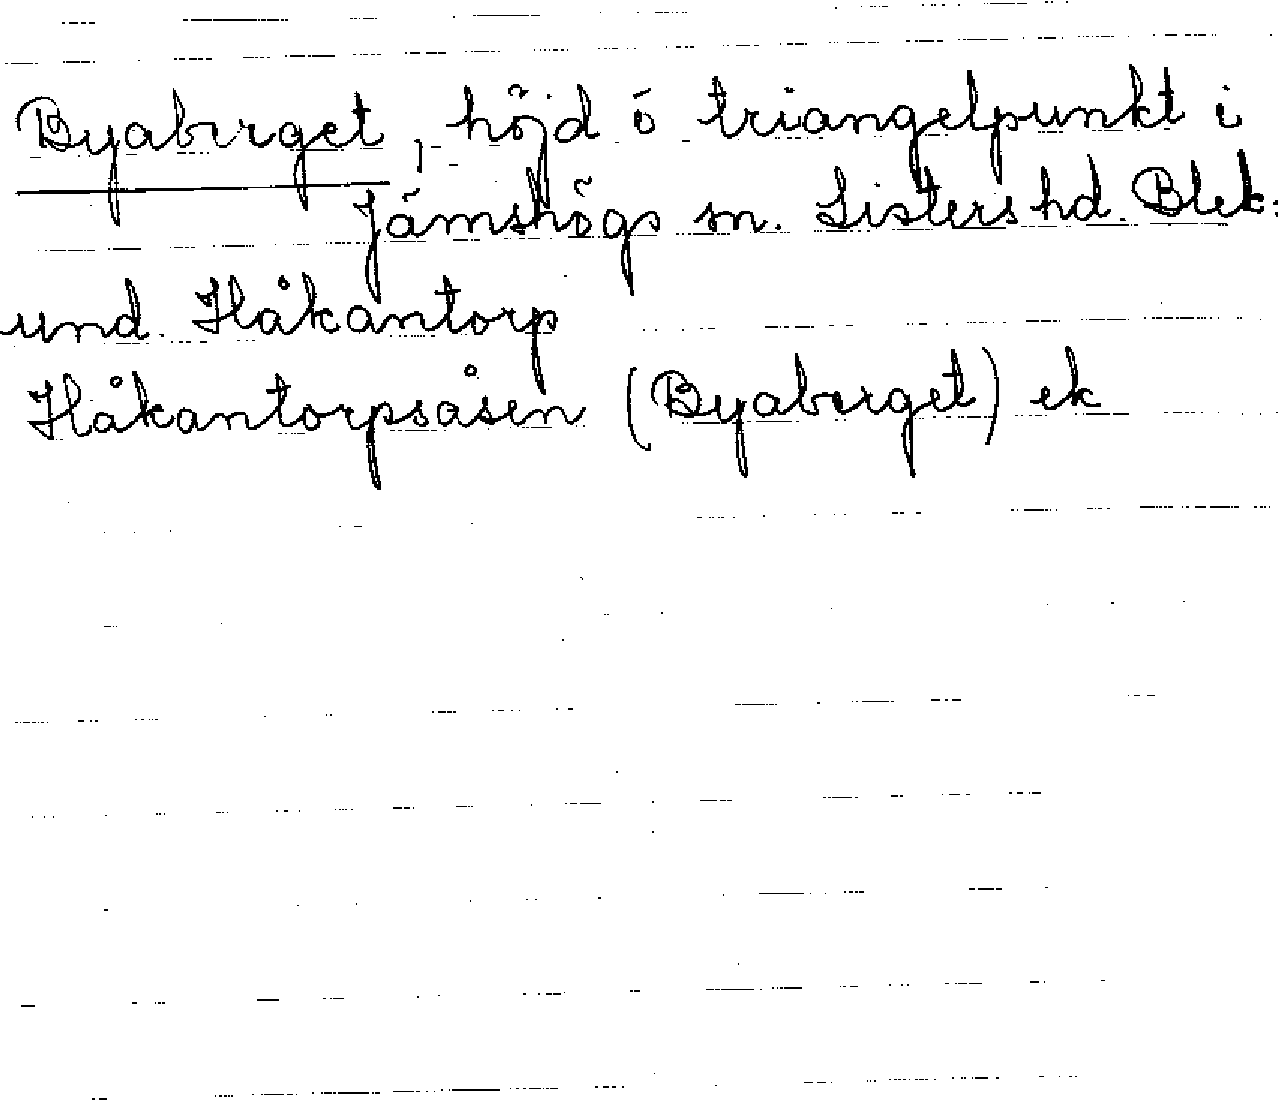 Byaberget, höjd ö triangelpunkt i
Jämshögs sn. Listers hd. Blek.
und. Håkantorp
Håkantorpsåsen (Byaberget) ek